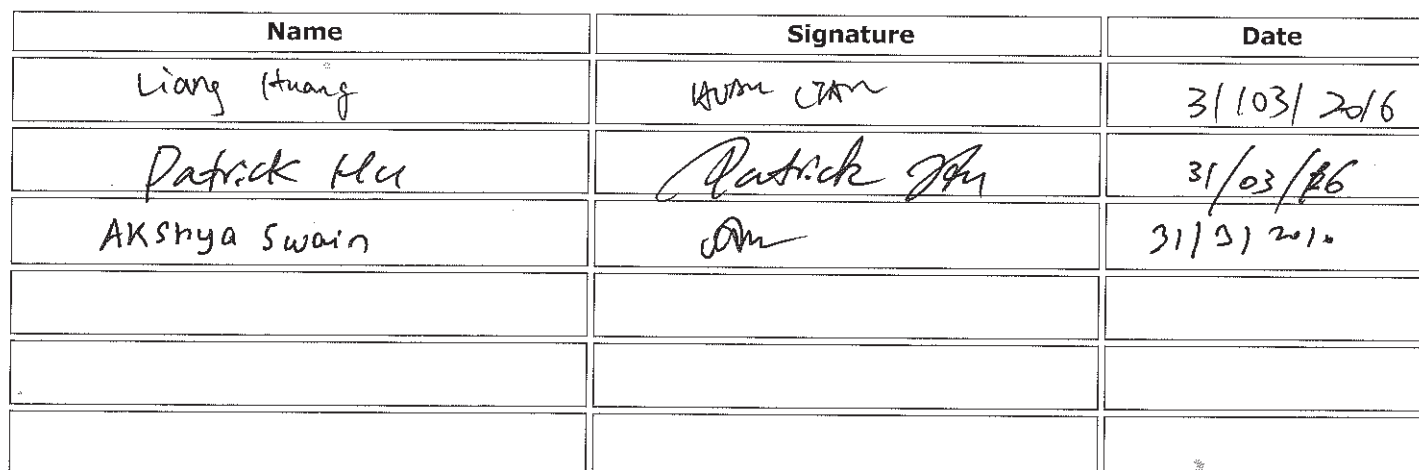 Name Signature Date
Liang Huang 31/03/2016
Patrick Hu Patrick Hu 31/03/16
AKshya Swain 31/3/